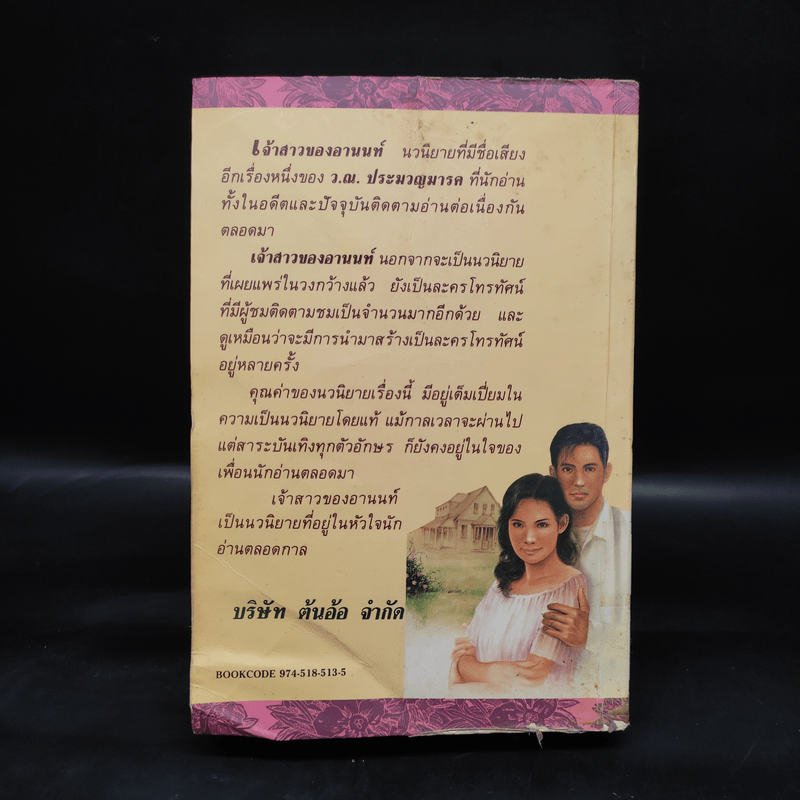 เจ้าสาวของอานนท์ นวนิยายที่มีชื่อเสียง
อีกเรื่องหนึ่งของ ว.ณ. ประมวญมารค ที่นักอ่าน
ทั้งในอดีตและปัจจุบันติดตามอ่านต่อเนื่องกัน
ตลอดมา
เจ้าสาวของอานนท์ นอกจากจะเป็นนวนิยาย
ที่เผยแพร่ในวงกว้างแล้ว ยังเป็นละครโทรทัศน์
ที่มีผู้ชมติดตามชมเป็นจำนวนมากอีกด้วย และ
ดูเหมือนว่าจะมีการนำมาสร้างเป็นละครโทรทัศน์
อยู่หลายครั้ง
คุณค่าของนวนิยายเรื่องนี้ มีอยู่เต็มเปี่ยมใน
ความเป็นนวนิยายโดยแท้ แม้กาลเวลาจะผ่านไป
แต่สาระบันเทิงทุกตัวอักษร ก็ยังคงอยู่ในใจของ
เพื่อนนักอ่านตลอดมา
เจ้าสาวของอานนท์
เป็นนวนิยายที่อยู่ในหัวใจนัก
อ่านตลอดกาล
บริษัท ต้นอ้อ จำกัด
BOOKCODE 974-518-513-5